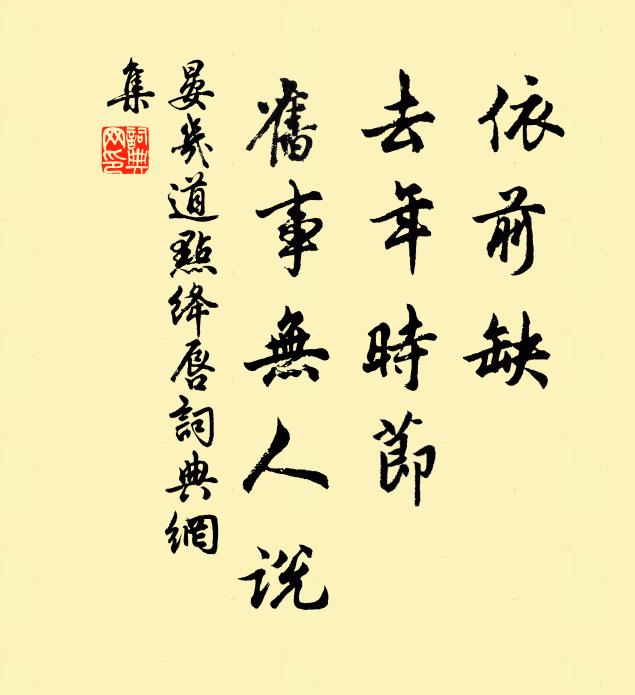 依前缺
去年時節
舊事無人說
晏幾道點絳唇詞典網
集
詞典
网印